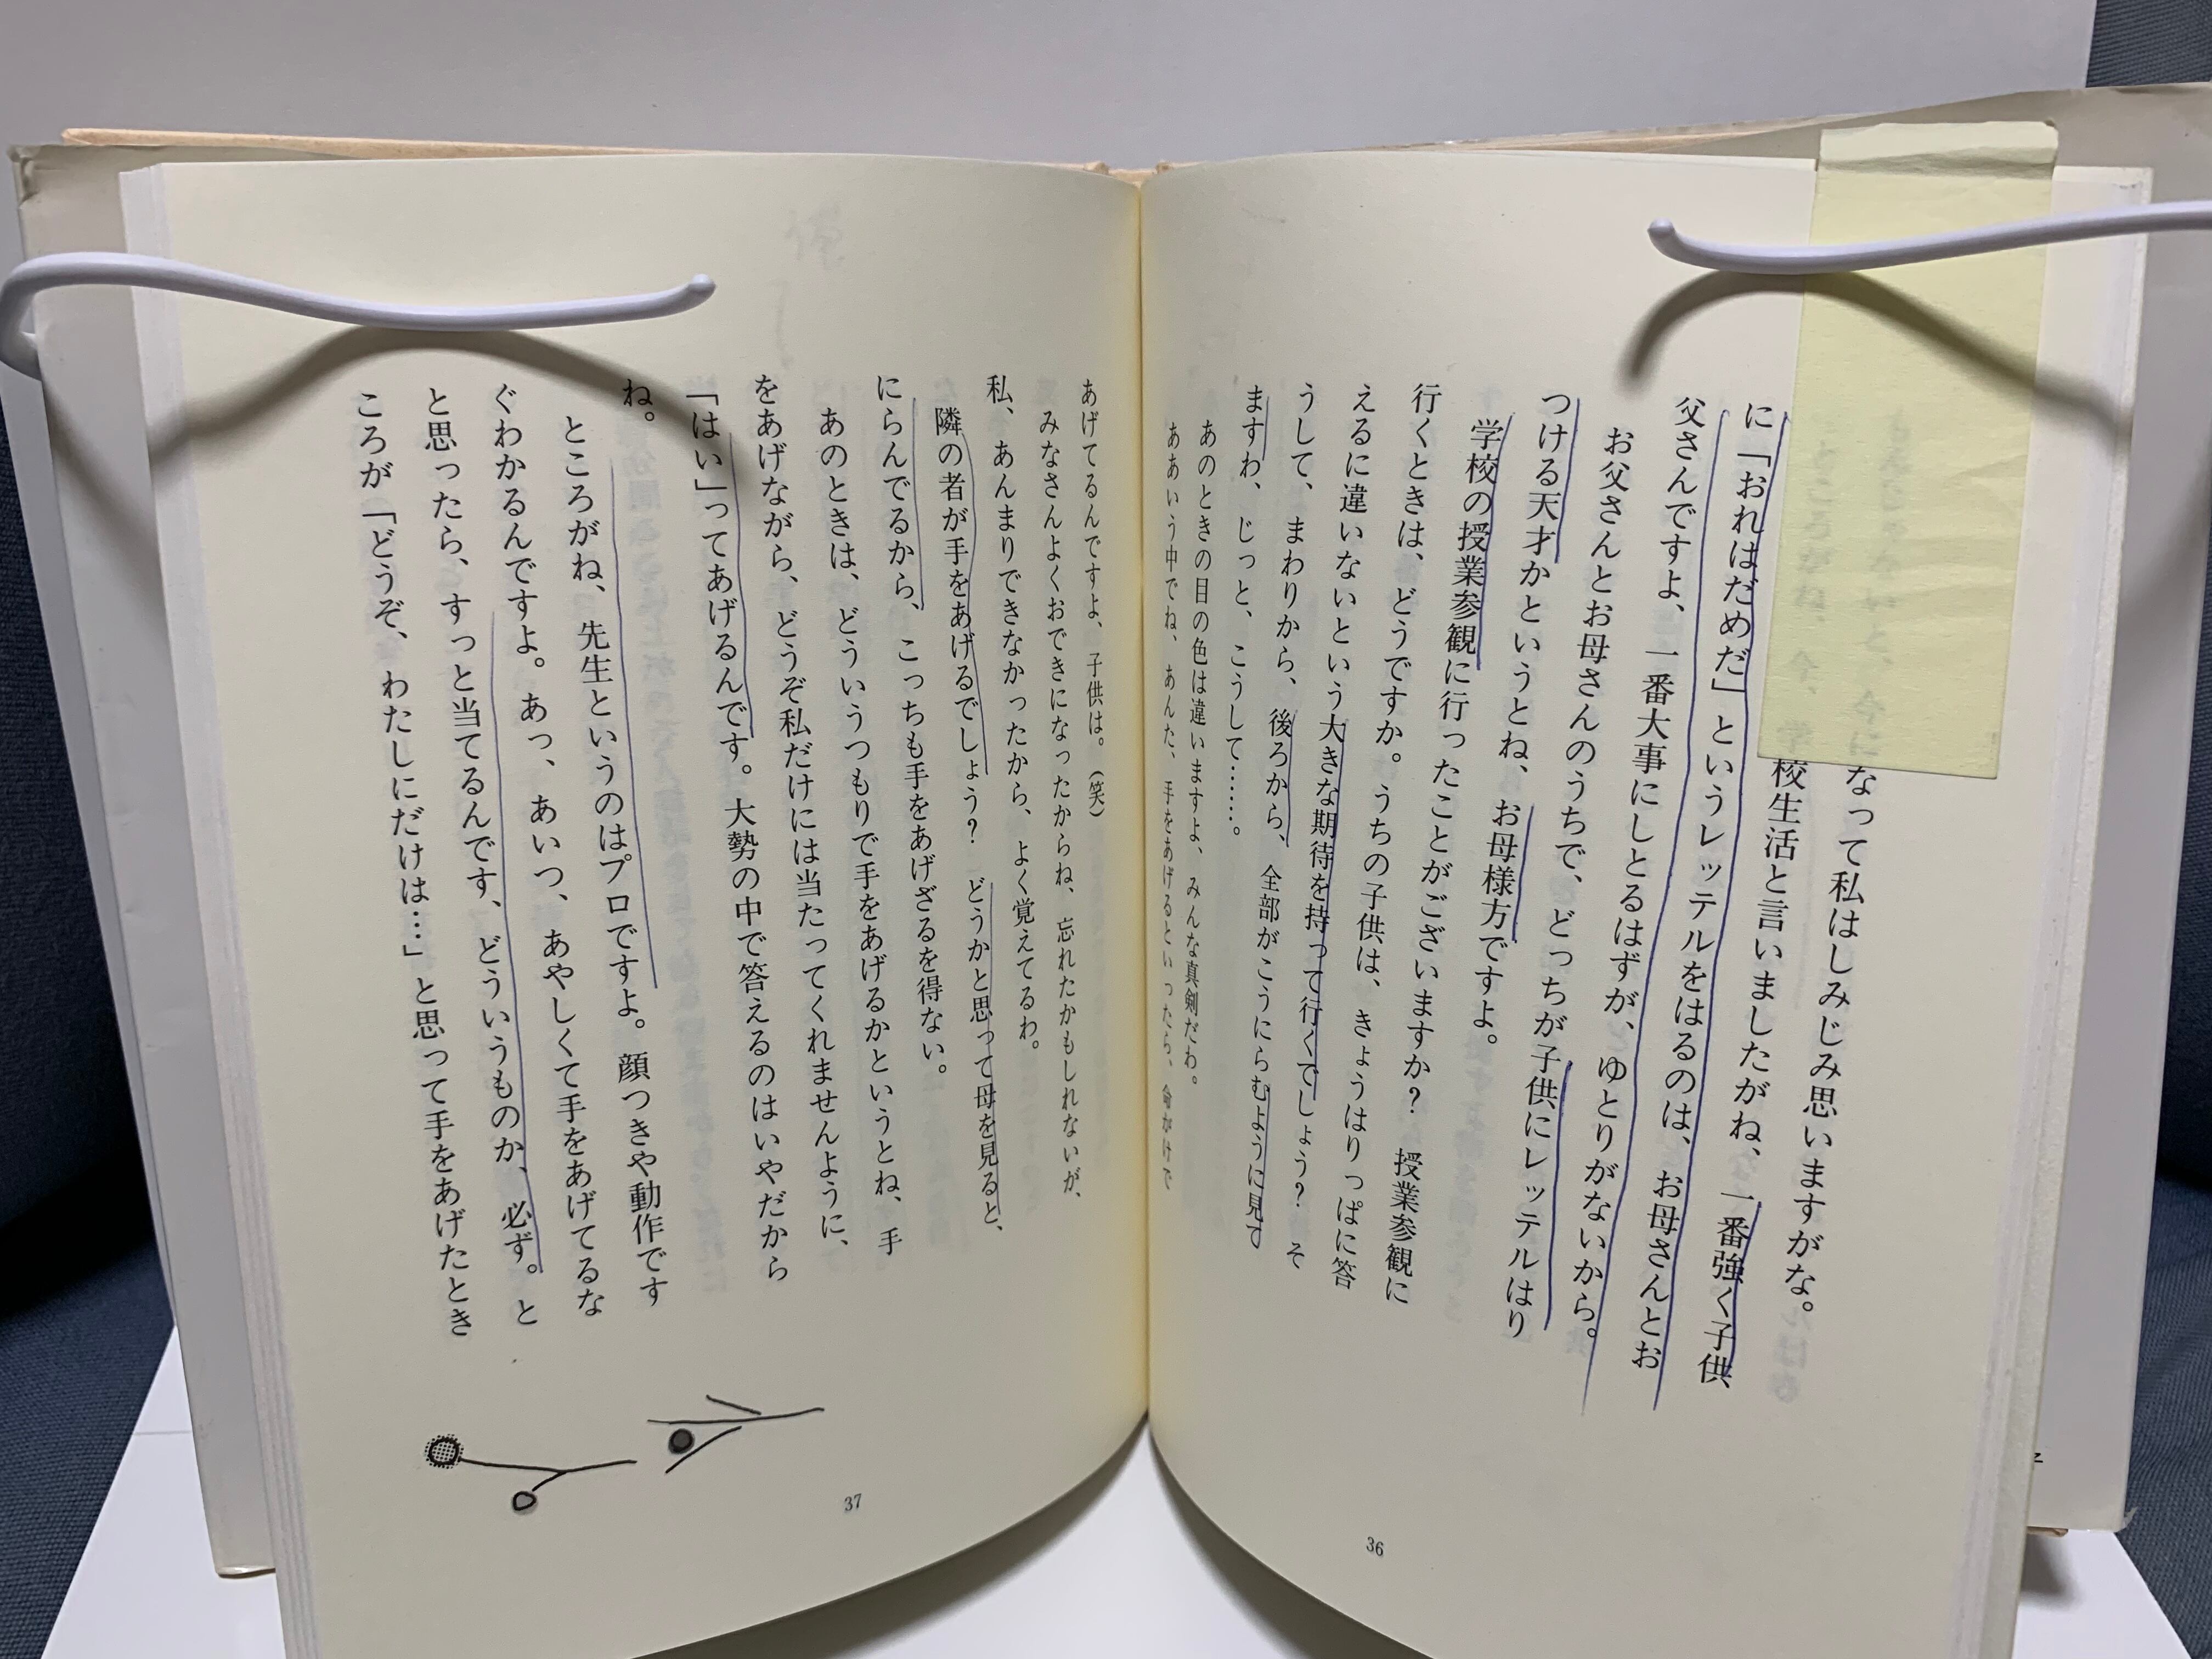 なって私はしみじみ思いますがな。
校生活と言いましたがね、一番強く子供
に「おれはだめだ」というレッテルをはるのは、お母さんとお
父さんですよ、一番大事にしとるはずが、ゆとりがないから。
お父さんとお母さんのうちで、どっちが子供にレッテルはり
つける天才かというとね、お母様方ですよ。
学校の授業参観に行ったことがございますか？　授業参観に
行くときは、どうですか。うちの子供は、きょうはりっぱに答
えるに違いないという大きな期待を持って行くでしょう？　そ
うして、まわりから、後ろから、全部がこうにらむように見す
ますわ、じっと、こうして……。
あのときの目の色は違いますよ、みんな真剣だわ。
ああいう中でね、あんた、手をあげるといったら、命がけで
36
あげてるんですよ、子供は。（笑）
みなさんよくおできになったからね、忘れたかもしれないが、
私、あんまりできなかったから、よく覚えてるわ。
隣の者が手をあげるでしょう？　どうかと思って母を見ると、
にらんでるから、こっちも手をあげざるを得ない。
あのときは、どういうつもりで手をあげるかというとね、手
をあげながら、どうぞ私だけには当たってくれませんように、
「はい」ってあげるんです。大勢の中で答えるのはいやだから
ね。
ところがね、先生というのはプロですよ。顔つきや動作です
ぐわかるんですよ。あっ、あいつ、あやしくて手をあげてるな
と思ったら、すっと当てるんです、どういうものか、必ず。と
ころが「どうぞ、わたしにだけは…」と思って手をあげたとき
37